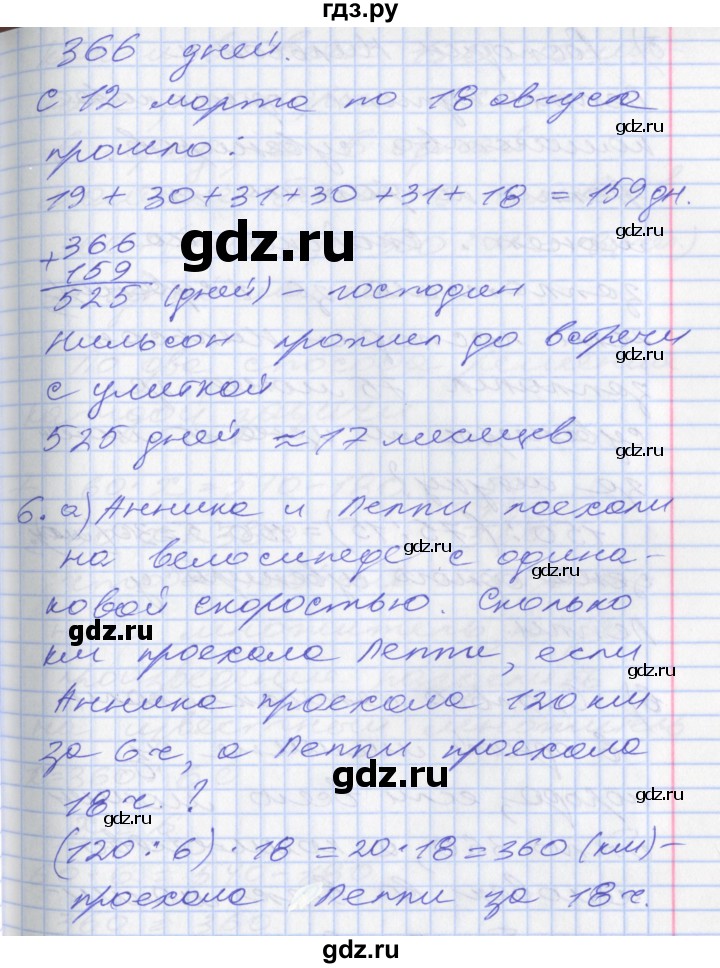 гдз.ру
366 дней.
С 12 марта по 18 августа
gdz.ru
прошло:
19 + 30 + 31 + 30 + 31 + 18 = 159 дн.
gdz.ru
gdz.ru
+ 366
159
525 (дней) – господин
Нильсон прожил до встречи
gdz.ru
gdz.ru
с улиткой
525 дней ≈ 17 месяцев
6. а) Анника и Пеппи поехали
gdz.ru
на велосипеде с одина-
gdz.ru
gdz.ru
ковой скоростью. Сколько
gdz.ru
км проехала Пеппи, если
Анника проехала 120 км
за 6 ч, а Пеппи проехала
gdz.ru
18 ч. ?
gdz.ru
gdz.ru
(120 : 6) · 18 = 20 · 18 = 360 (км) –
проехала Пеппи за 18 ч.
gdz.ru
gdz.ru
gdz.ru